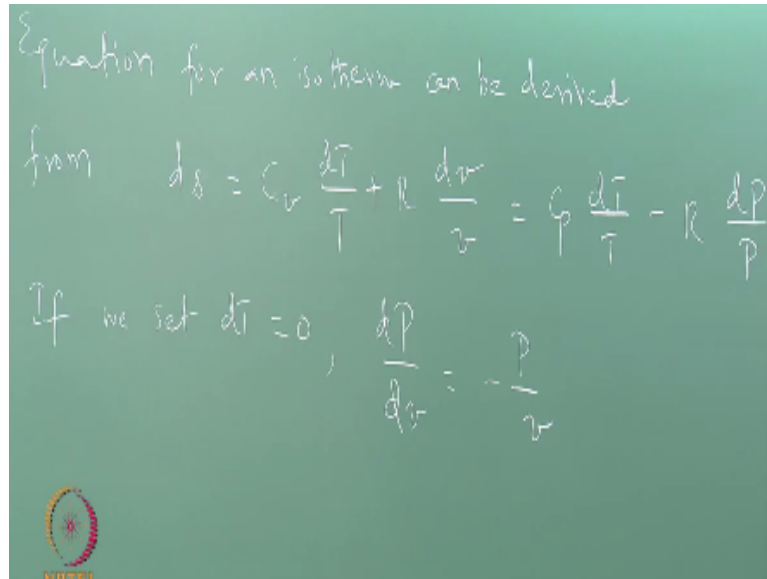 Equation for an isotherm can be derived
from ds = Cv dT/T + R dv/v = Cp dT/T - R dP/P
If we set dT = 0, dP/dv = - P/v
NPTEL